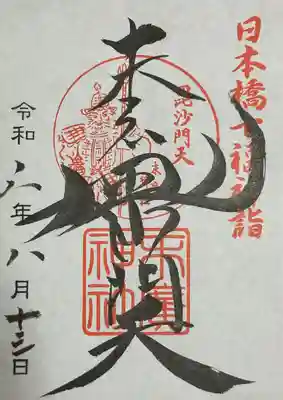 日本橋七福神詣
毘沙門天
末廣
毘沙門天
末廣
神社
令和六年八月十三日